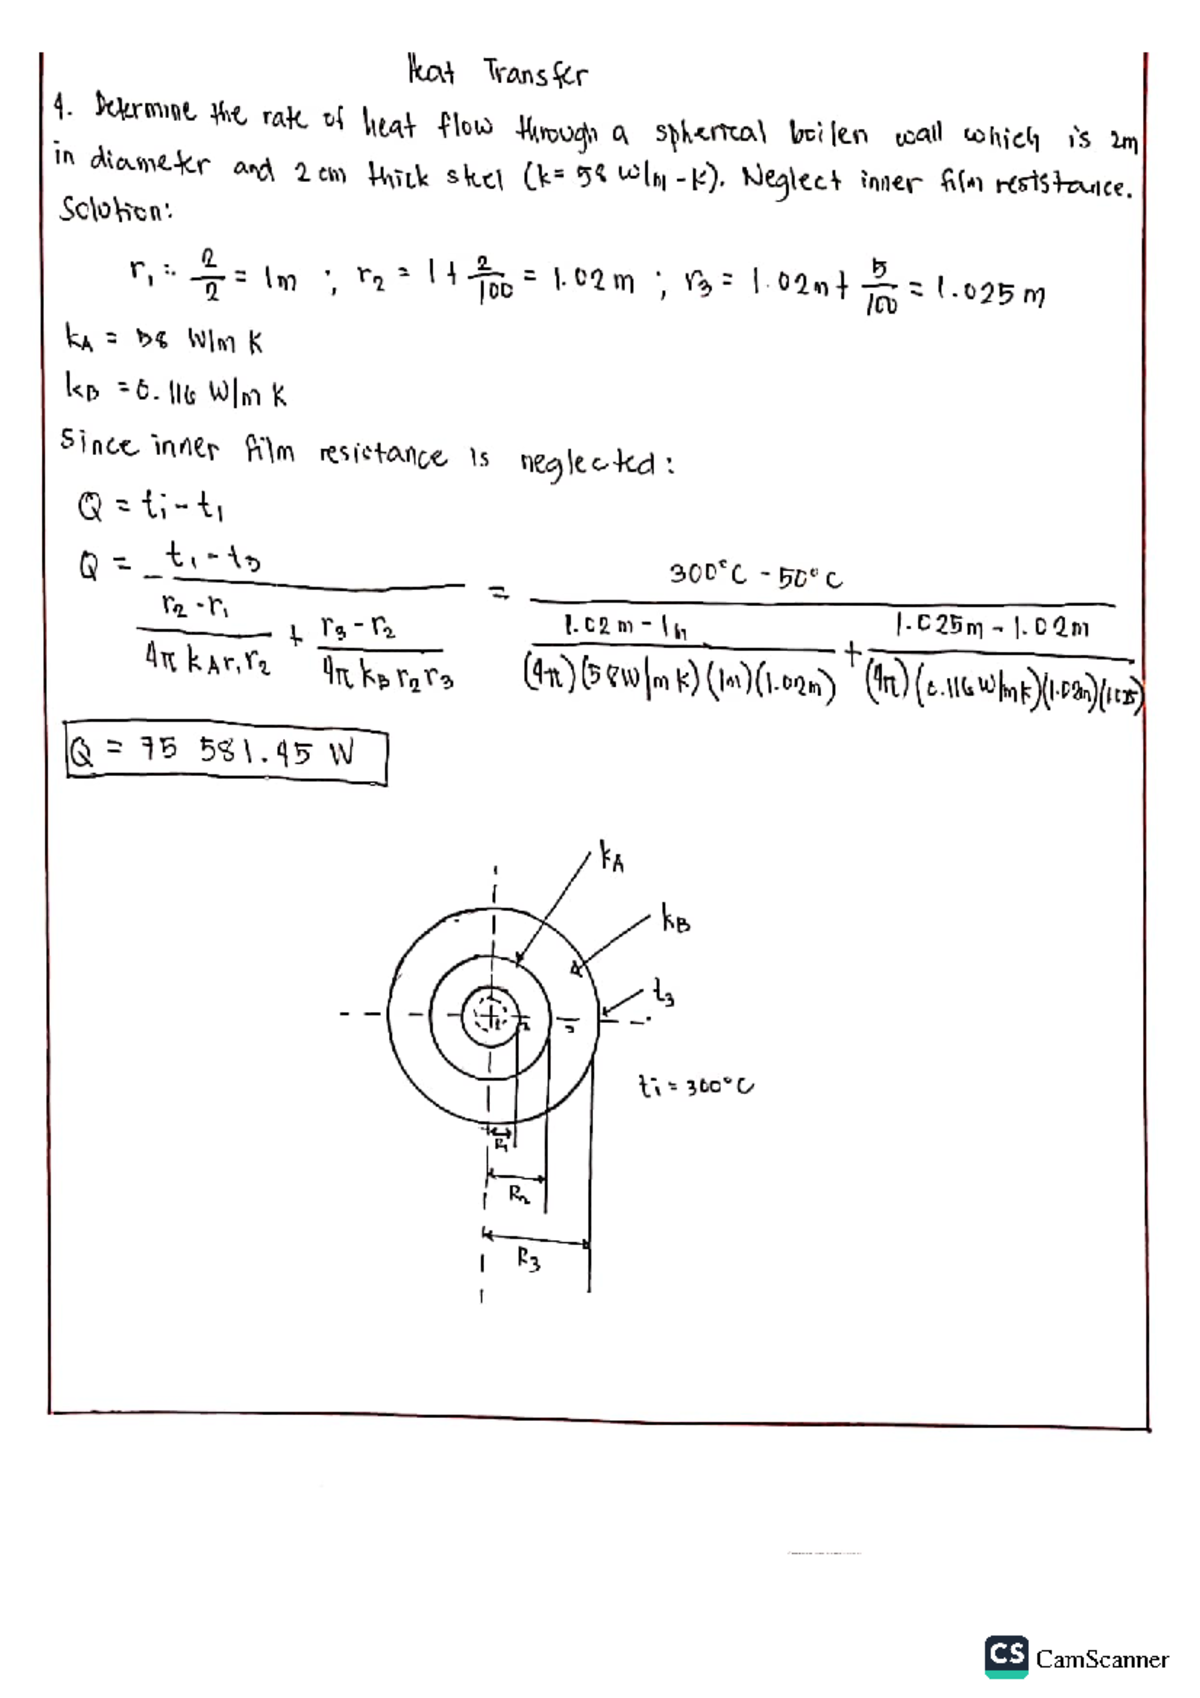 Heat Transfer
4. Determine the rate of heat flow through a spherical boilen wall which is 2m
in diameter and 2 cm thick steel (k= 58 W/m-K). Neglect inner film resistance.
Solution:
r₁ = 2/2 = 1m ; r₂ = 1 + 2/100 = 1.02m ; r₃ = 1.02m + 5/100 = 1.025m
kA = 58 W/m K
kB = 0.116 W/m K
Since inner film resistance is neglected:
Q = ti - t₁
Q = (t₁ - t₃) / ((r₂ - r₁)/(4π kA r₁ r₂) + (r₃ - r₂)/(4π kB r₂ r₃)) = (300°C - 50°C) / ((1.02m - 1m)/((4π)(58W/mK)(1m)(1.02m)) + (1.025m - 1.02m)/((4π)(0.116W/mK)(1.02m)(1.025)))
Q = 75 581.45 W
kA
kB
t₃
ti = 300°C
R₁
R₂
R₃
CS CamScanner